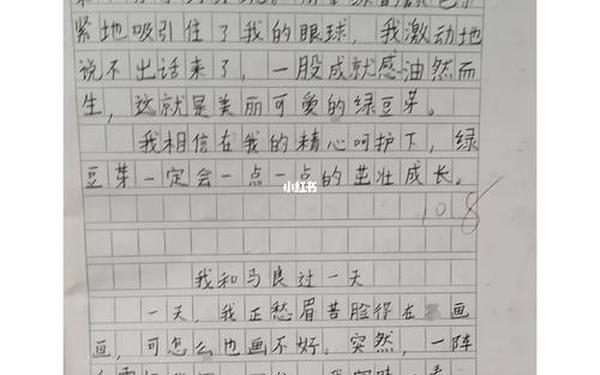 紧地吸引住了我的眼球，我激动地
说不出话来了，一股成就感油然而
生，这就是美丽可爱的绿豆芽。
我相信在我的精心呵护下，绿
豆芽一定会一点一点的茁壮成长。
小红书
10.8
我和马良过一天
一天，我正愁眉苦脸得在画
画，可怎么也画不好。突然，一阵